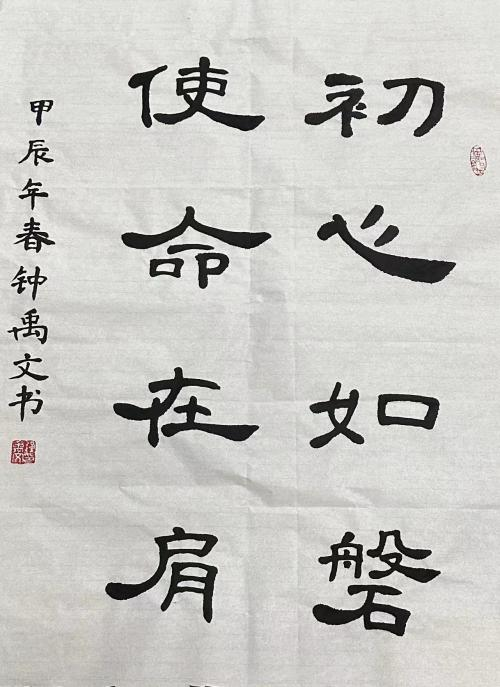 初心如磐
使命在肩
甲辰年春钟禹文书